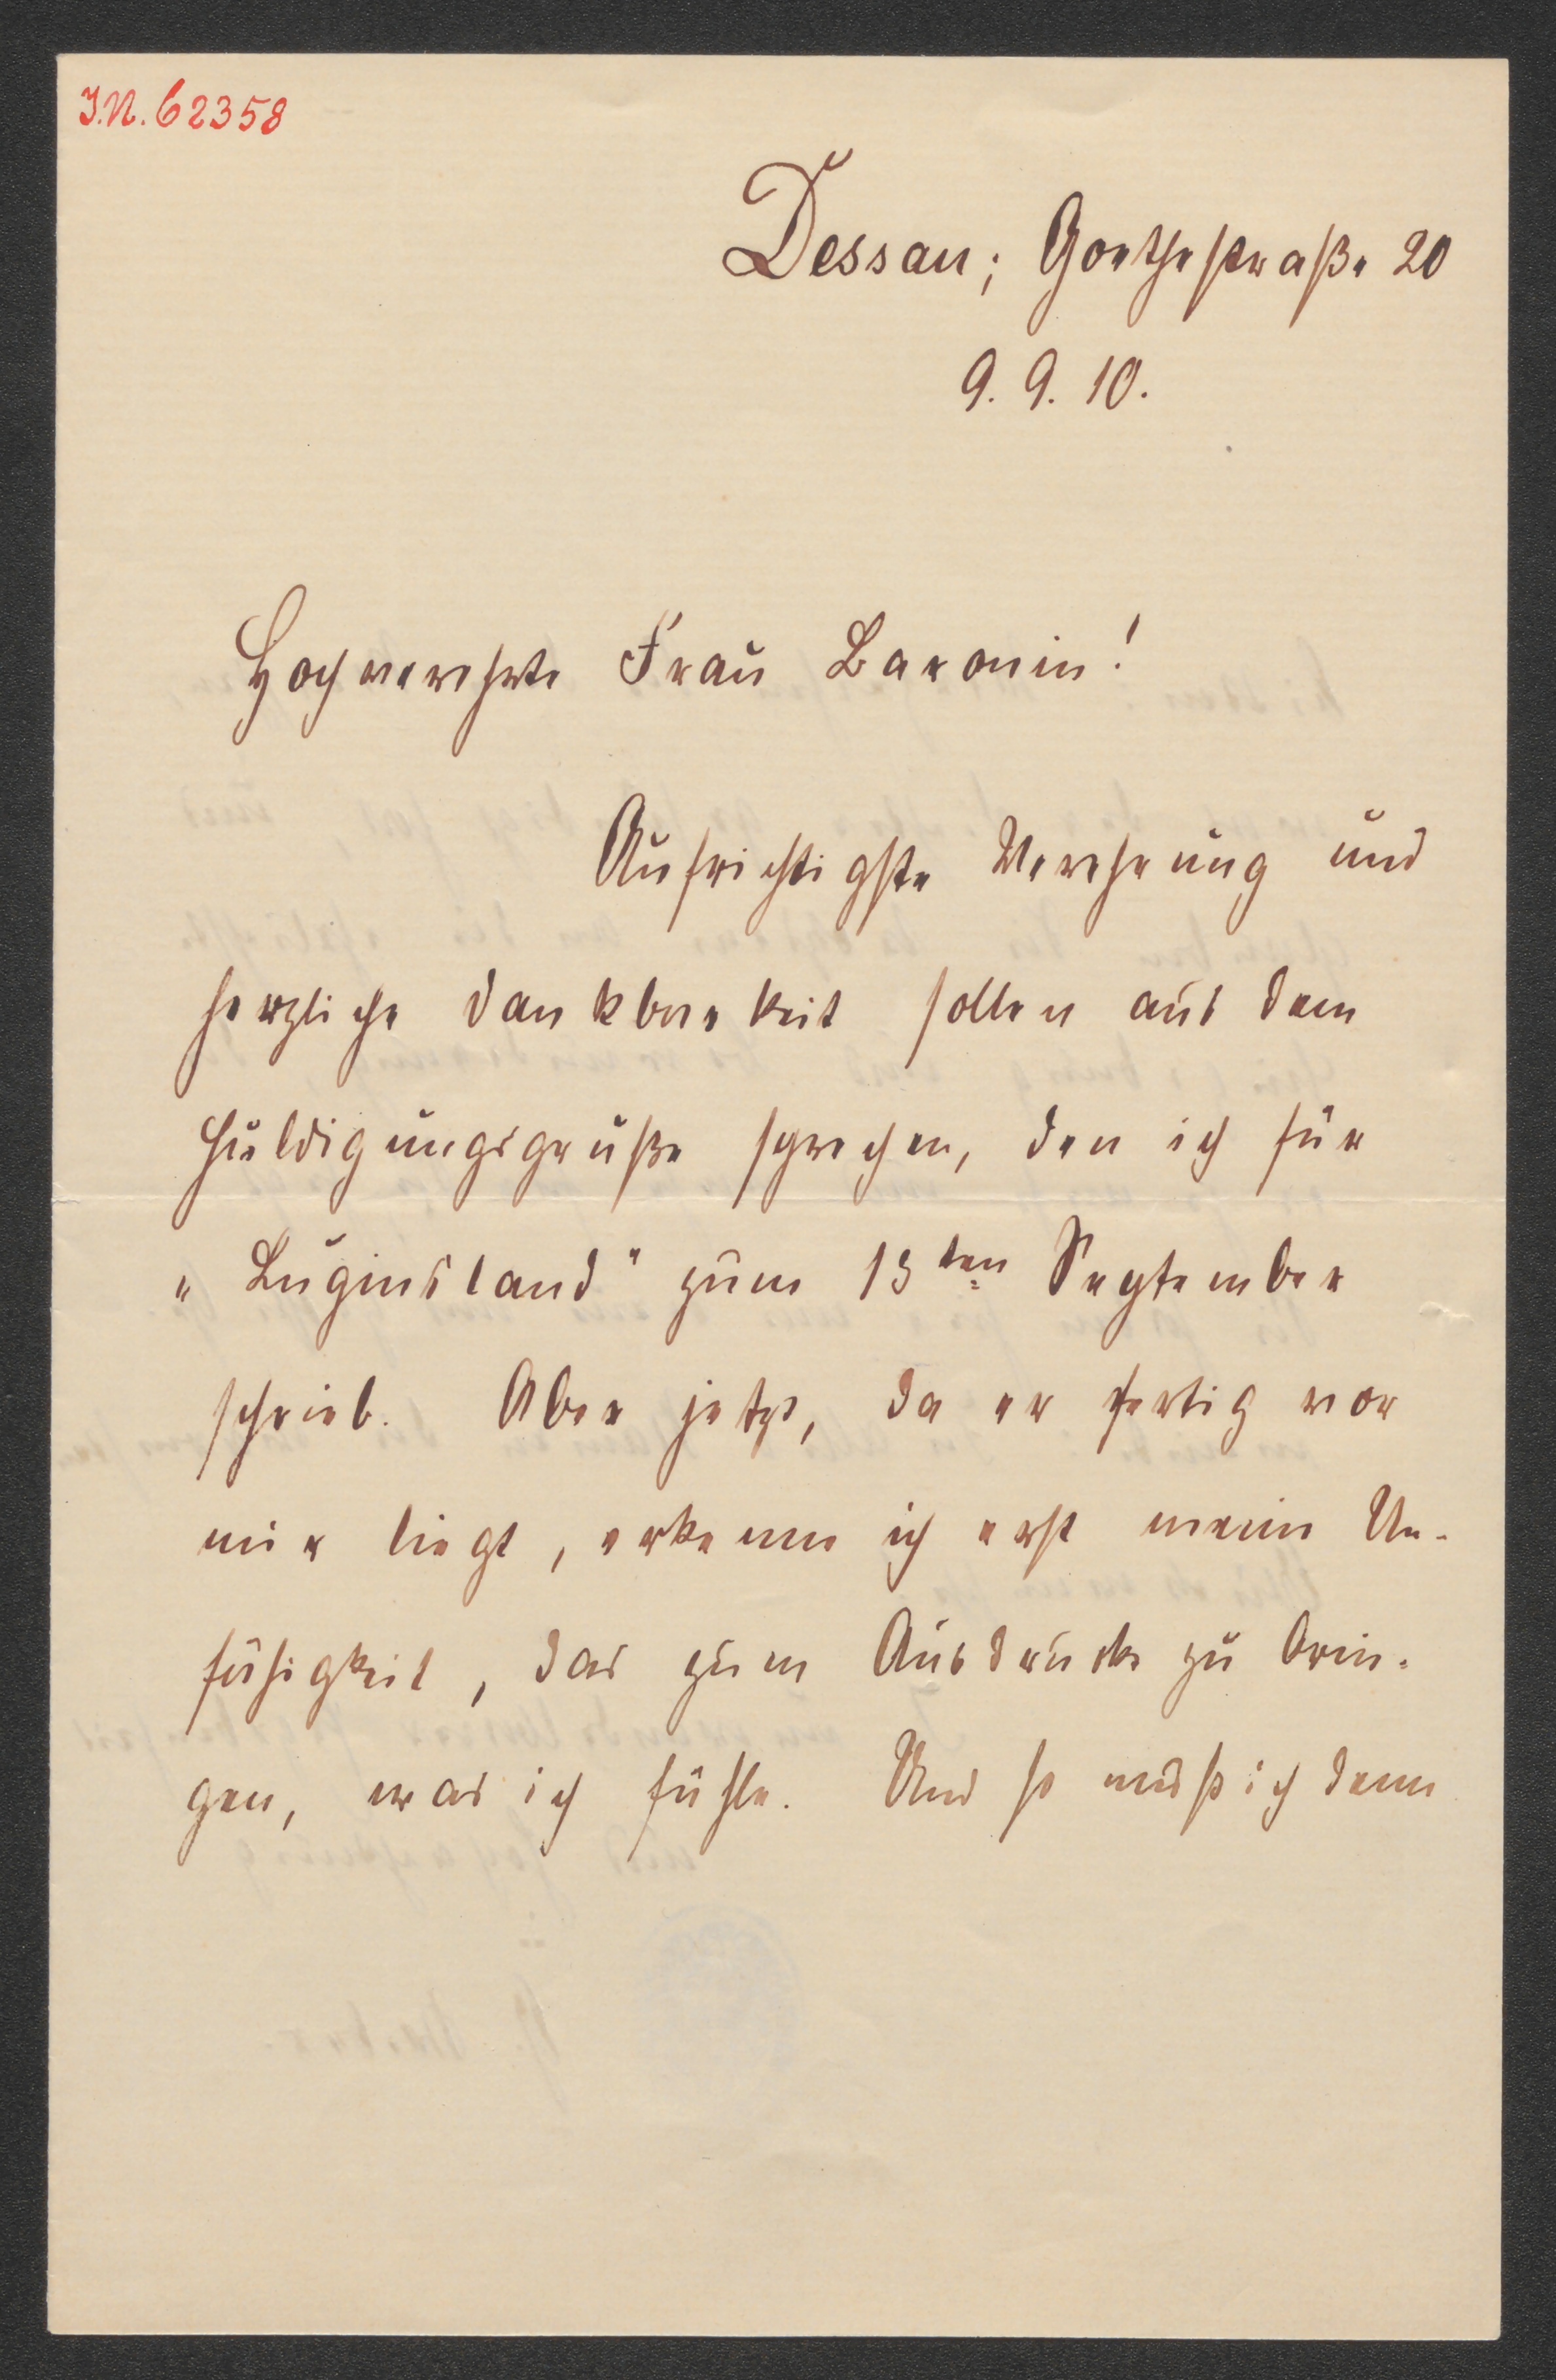 I.N. 62358
Dessau; Goethestraße 20
9. 9. 10.
Hochverehrte Frau Baronin!
Aufrichtigste Verehrung und
herzliche Dankbarkeit sollen aus dem
Huldigungsgruße sprechen, den ich für
„Luginsland" zum 13ten September
schrieb. Aber jetzt, da er fertig vor
mir liegt, erkenne ich erst meine Un-
fähigkeit, das zum Ausdrucke zu brin-
gen, was ich fühle. Und so muß ich denn